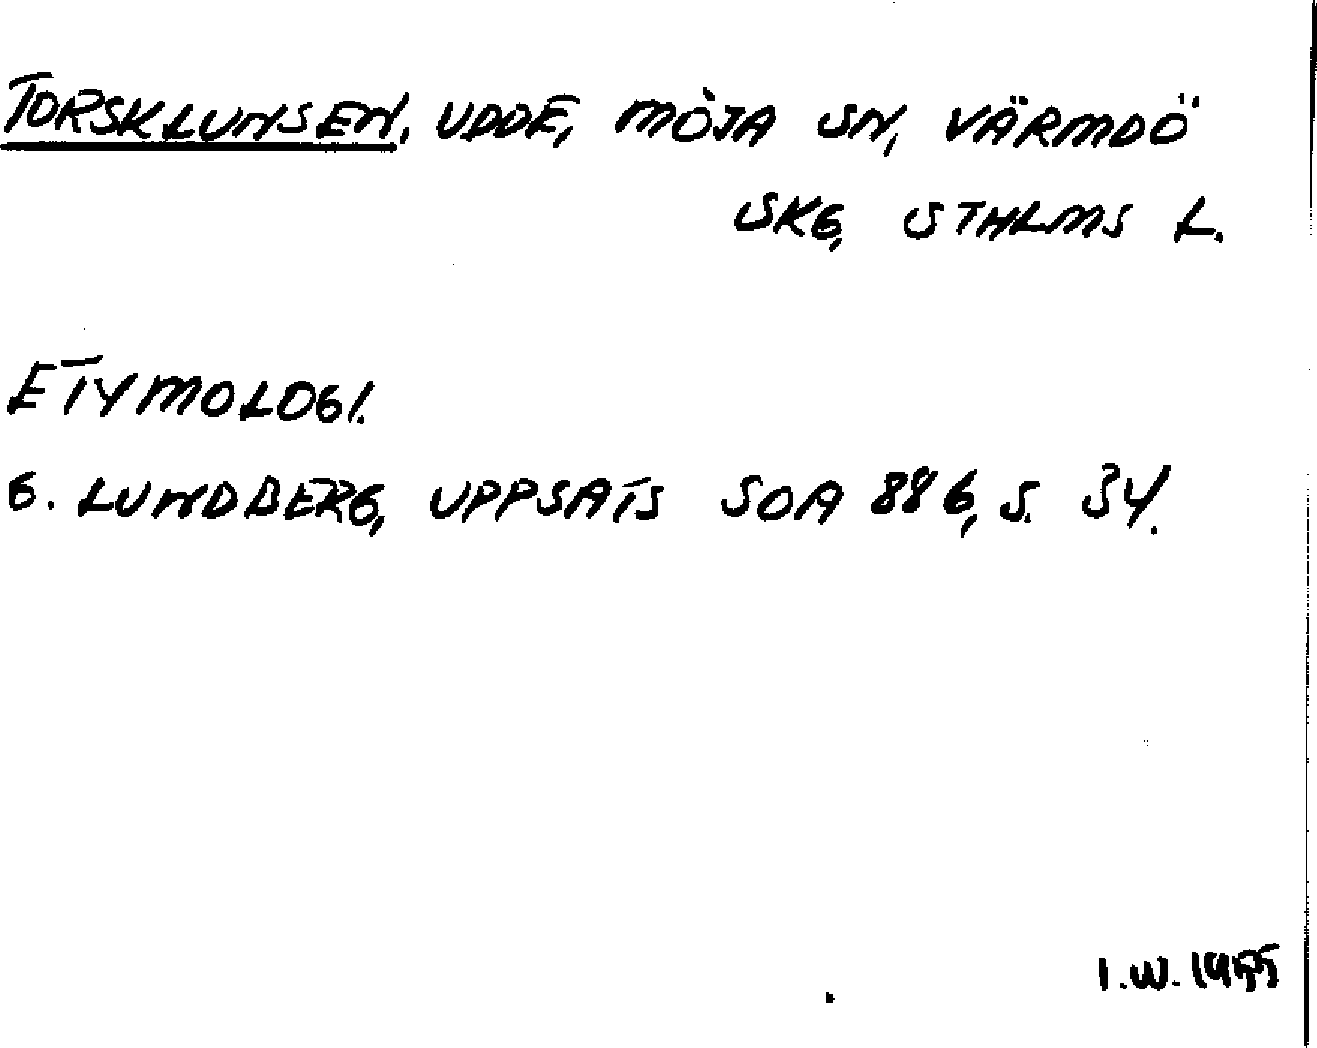 TORSKLUNSEN, UDDE, MÖJA SN, VÄRMDÖ
SKG, STHLMS L.
ETYMOLOGI.
G. LUNDBERG, UPPSATS SOA 886, S. 34.
I.W. 1955